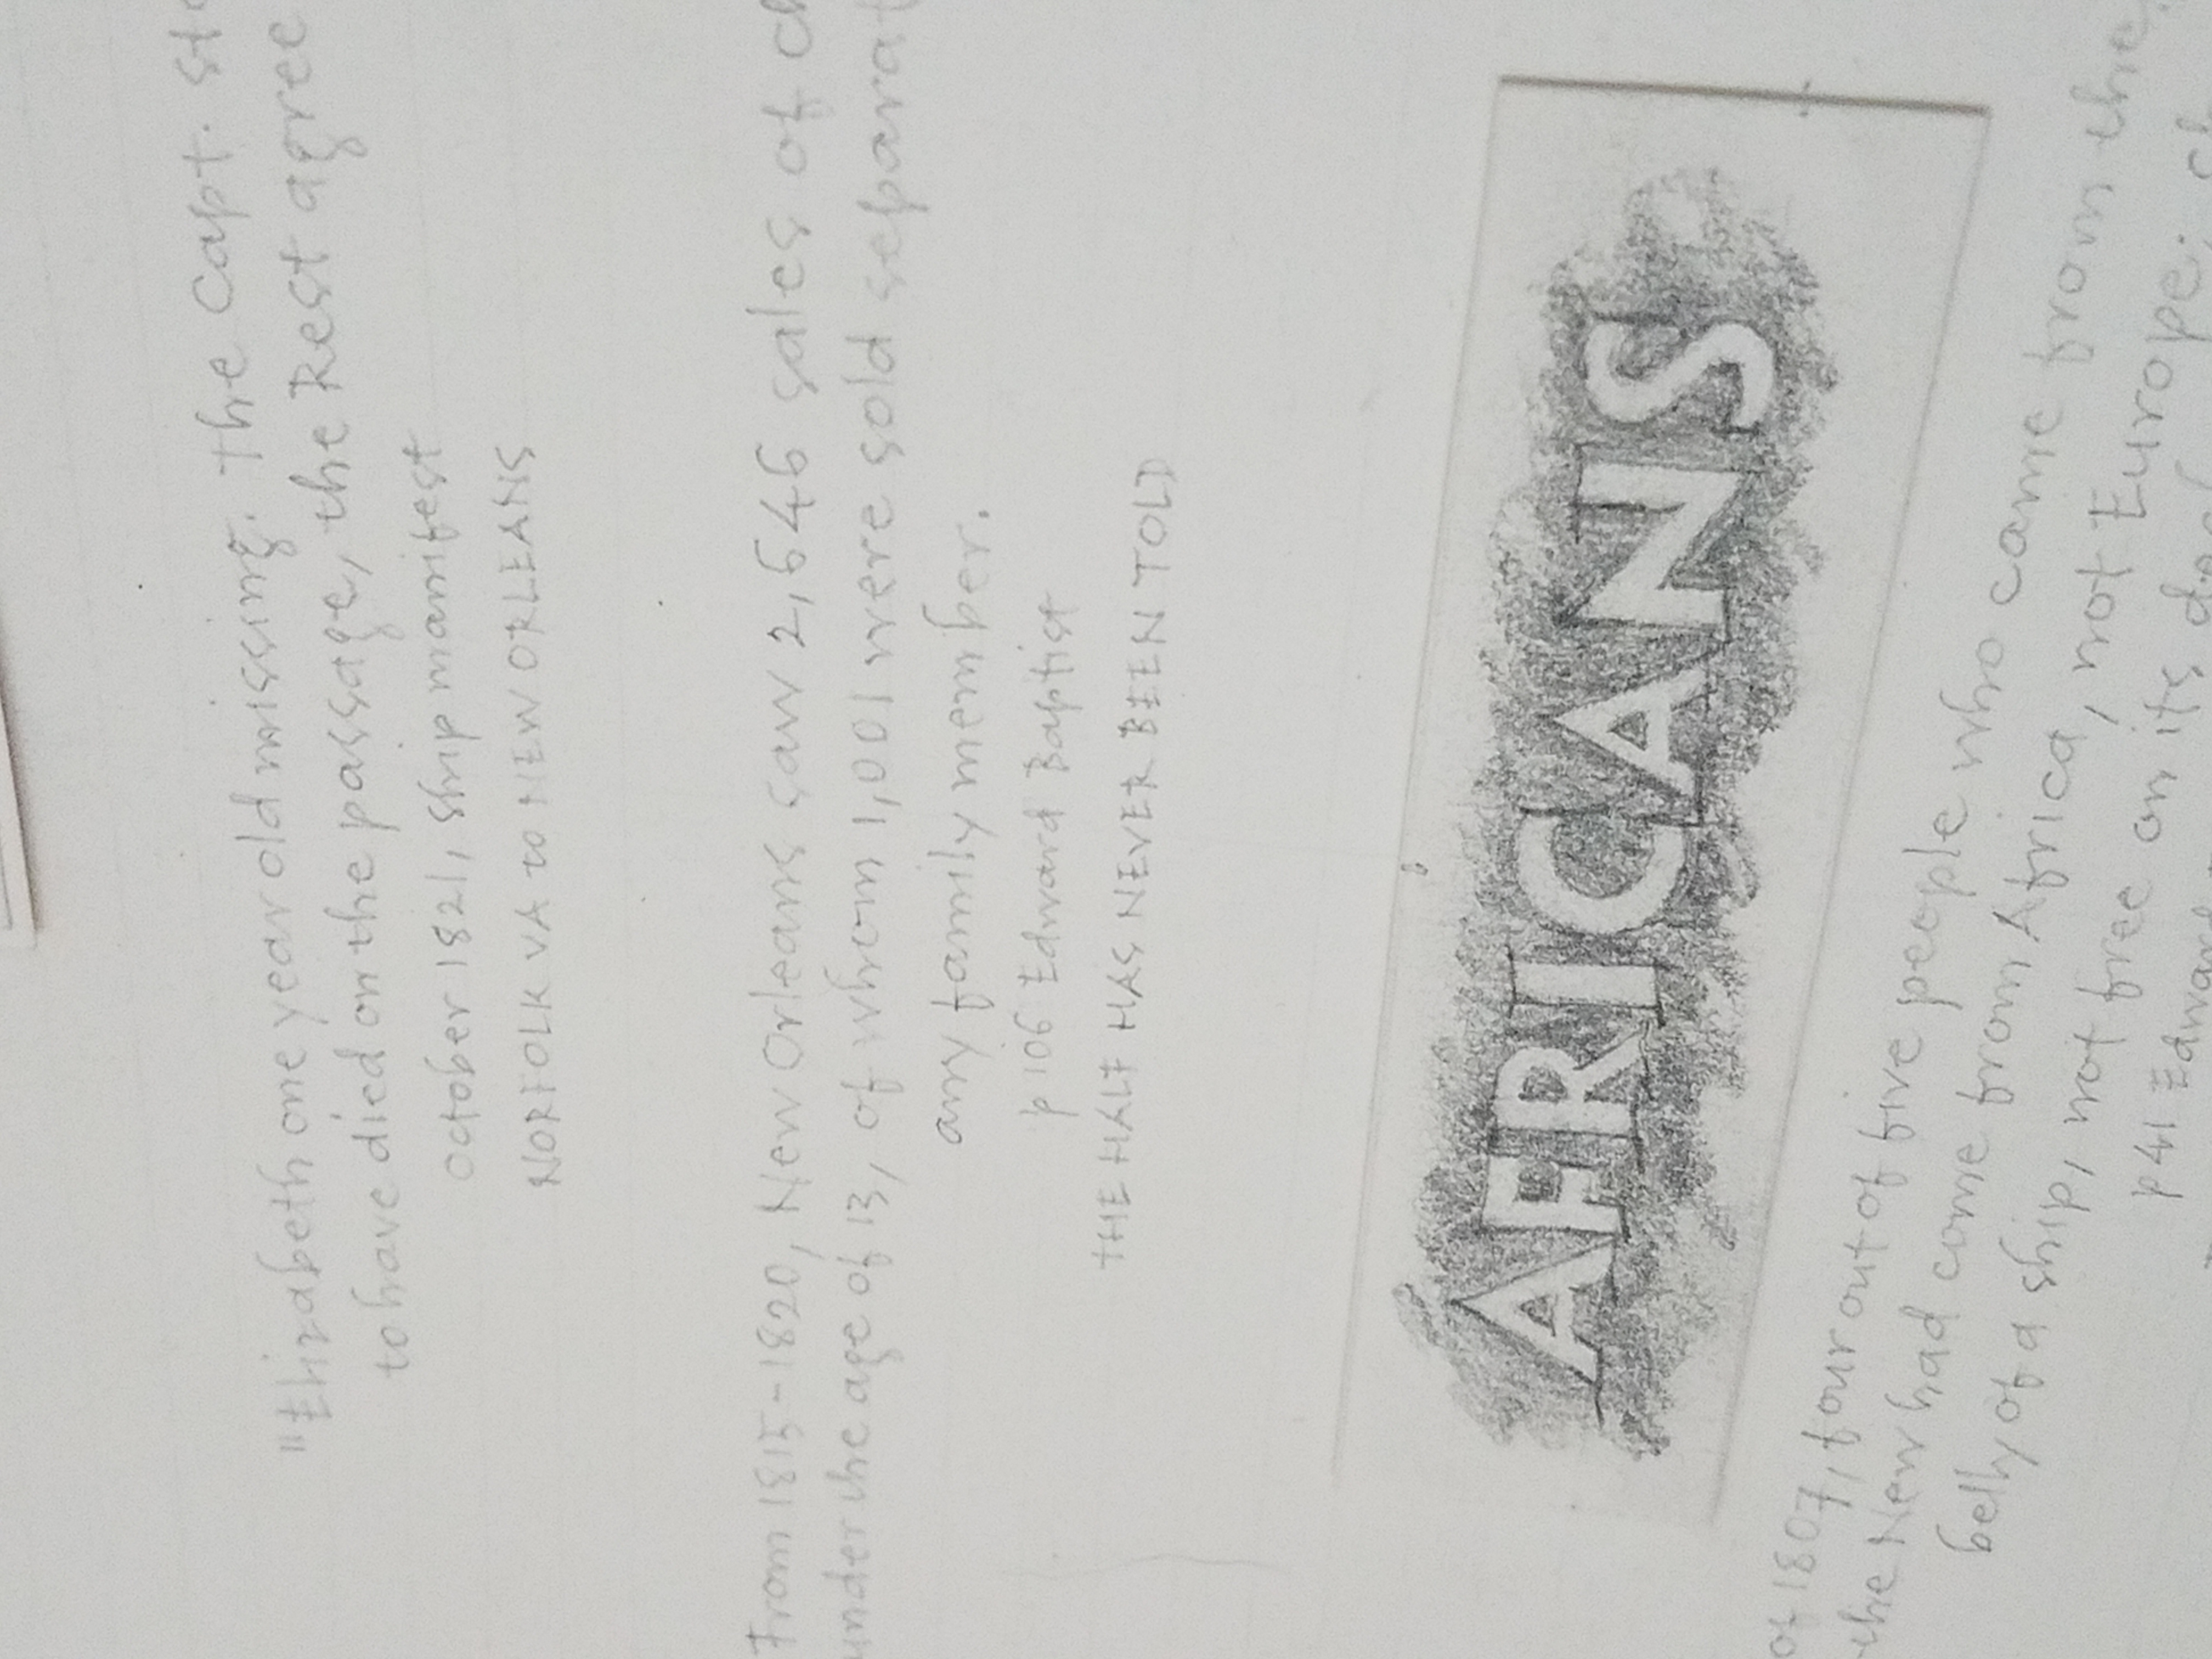 "Elizabeth one year old missing. The Capt.
to have died on the passage, the Rest agree
October 1821, ship manifest
NORFOLK VA to NEW ORLEANS
From 1815-1820, New Orleans saw 2,646 sales of
under the age of 13, of whom 1,001 were sold
any family member.
p 106 Edward Baptist
THE HALF HAS NEVER BEEN TOLD
AFRICANS
of 1807, four out of five people who came from the
the New had come from Africa, not Europe;
belly of a ship, not free on its
p 41 Edward